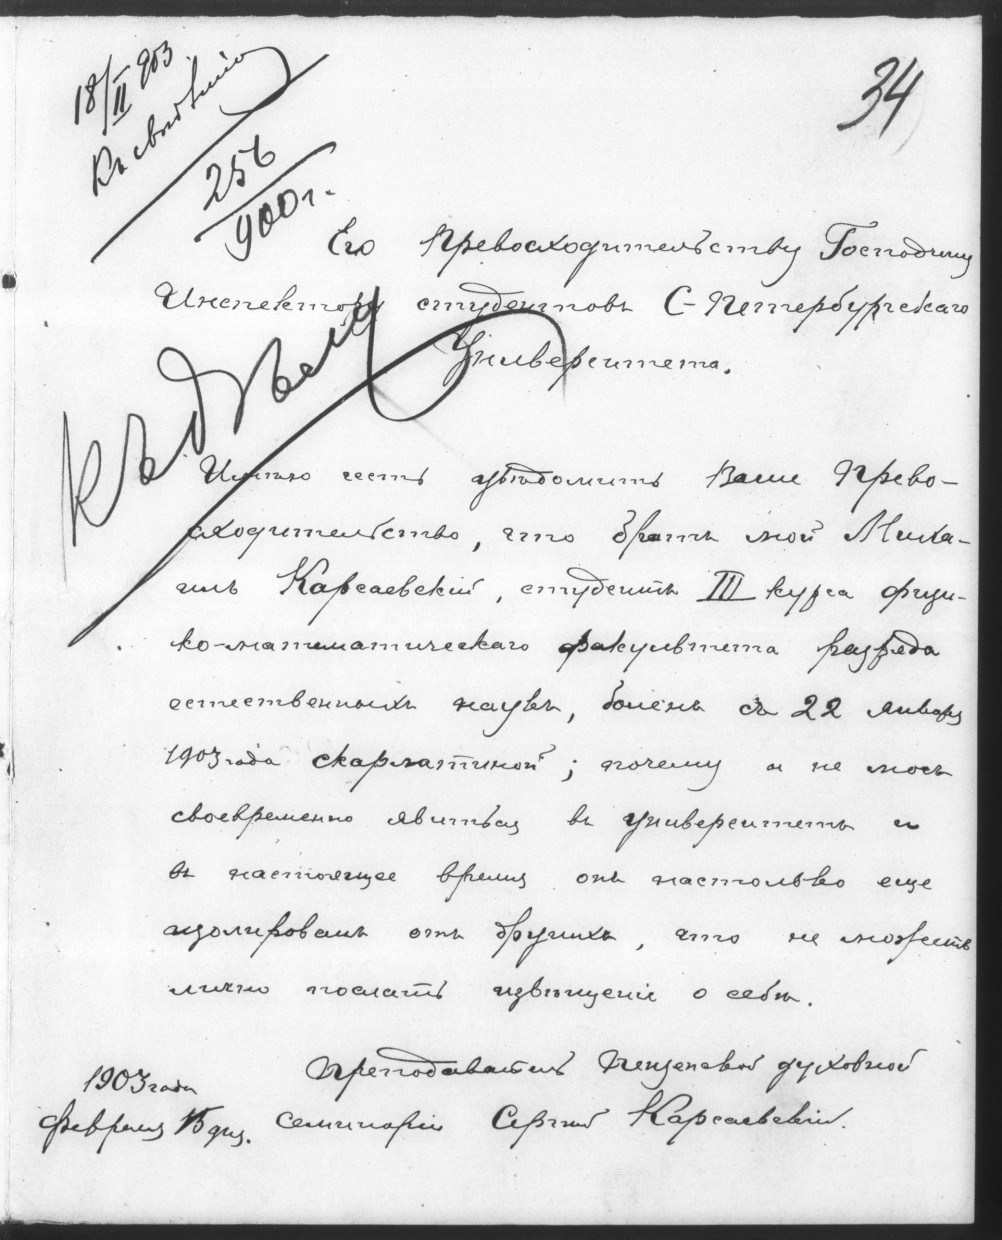 18/II 903
Къ свѣдѣнію
34
256
900 г.
Его Превосходительству Господину
Инспектору студентовъ С-Петербургскаго
Университета.
Къ дѣлу
Имѣю честь увѣдомить Ваше Прево-
сходительство, что братъ мой Миха-
илъ Карсаевскій, студентъ III курса физи-
ко-математическаго факультета разряда
естественныхъ наукъ, боленъ съ 22 января
1903 года скарлатиной; почему и не могъ
своевременно явиться въ университетъ и
въ настоящее время онъ настолько еще
изолированъ отъ другихъ, что не можетъ
лично послать извѣщеніе о себѣ.
Преподаватель Пензенской духовной
1903 года
февраля 15 дня. семинаріи Сергій Карсаевскій.